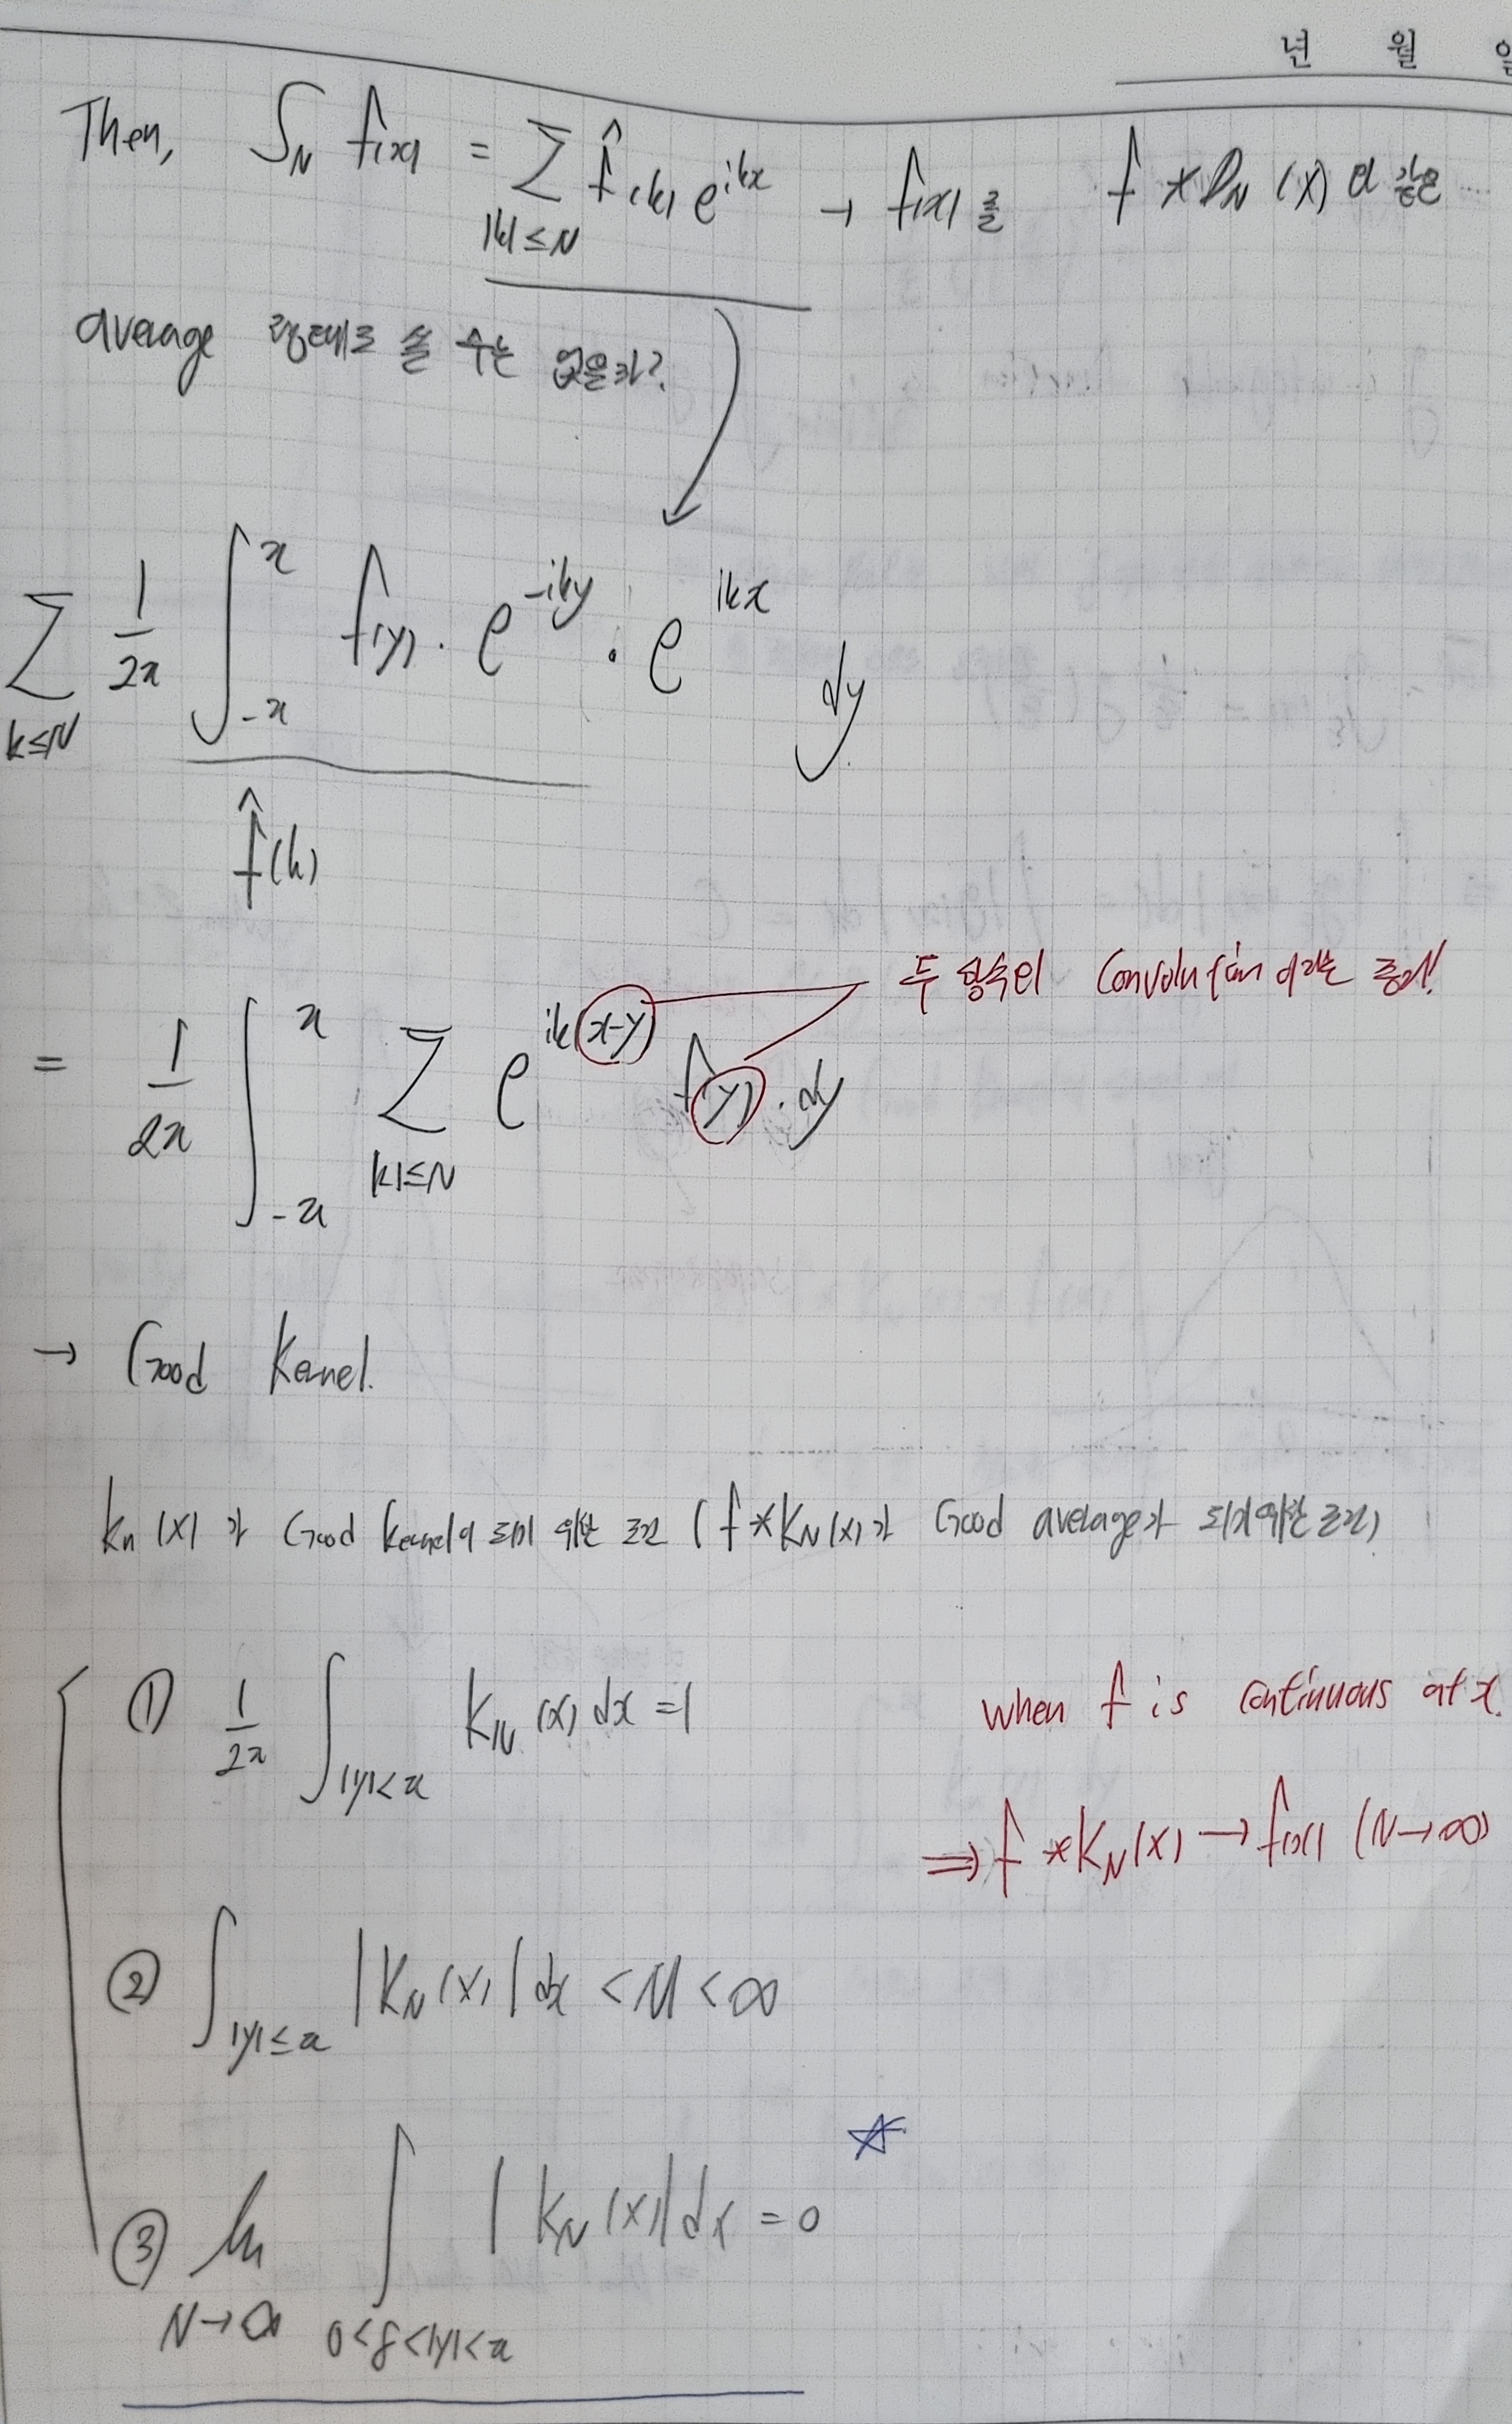 년 월 일
Then, S_N f(x) = Σ_{|k|≤N} f̂(k) e^{ikx} → f(x)를 f * D_N (x)와 같은
average 형태로 쓸 수는 없을까?
Σ_{k≤N} 1/2π ∫_{-π}^{π} f(y) · e^{-iky} · e^{ikx} dy
f̂(k)
두 함수의 Convolution이라는 증거!
= 1/2π ∫_{-π}^{π} Σ_{|k|≤N} e^{ik(x-y)} f(y) · dy
→ Good Kernel.
K_n (x)가 Good kernel이 되기 위한 조건 (f * K_N (x)가 Good average가 되기 위한 조건)
① 1/2π ∫_{|y|<π} K_N (x) dx = 1
when f is continuous at x.
⇒ f * K_N (x) → f(x) (N→∞)
② ∫_{|y|≤π} |K_N (x)| dx < M < ∞
③ lim_{N→∞} ∫_{0<δ<|y|<π} |K_N (x)| dx = 0 ☆